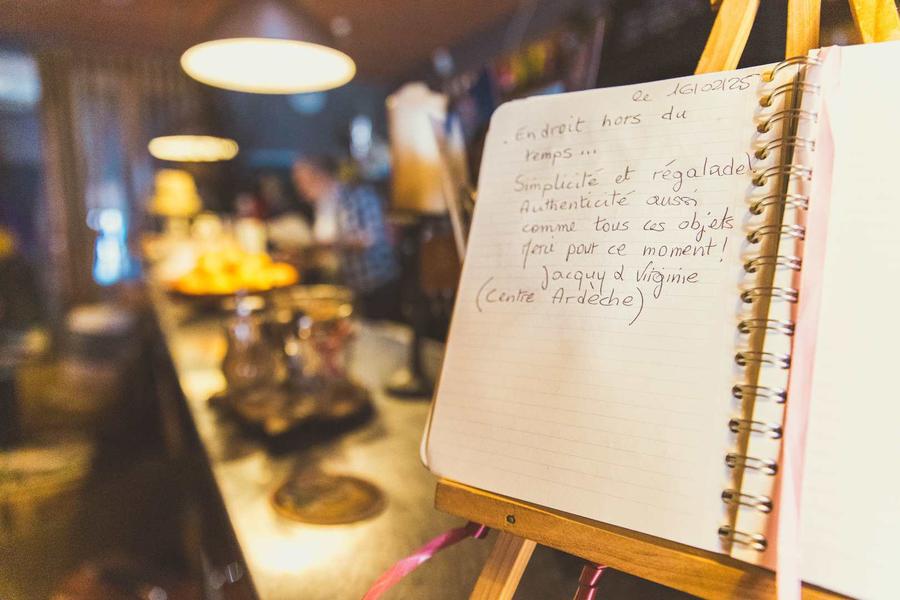 le 16/02/25
. Endroit hors du
temps...
Simplicité et régalade!
Authenticité aussi
comme tous ces objets
Merci pour ce moment!
Jacquy & Virginie
(Centre Ardèche)